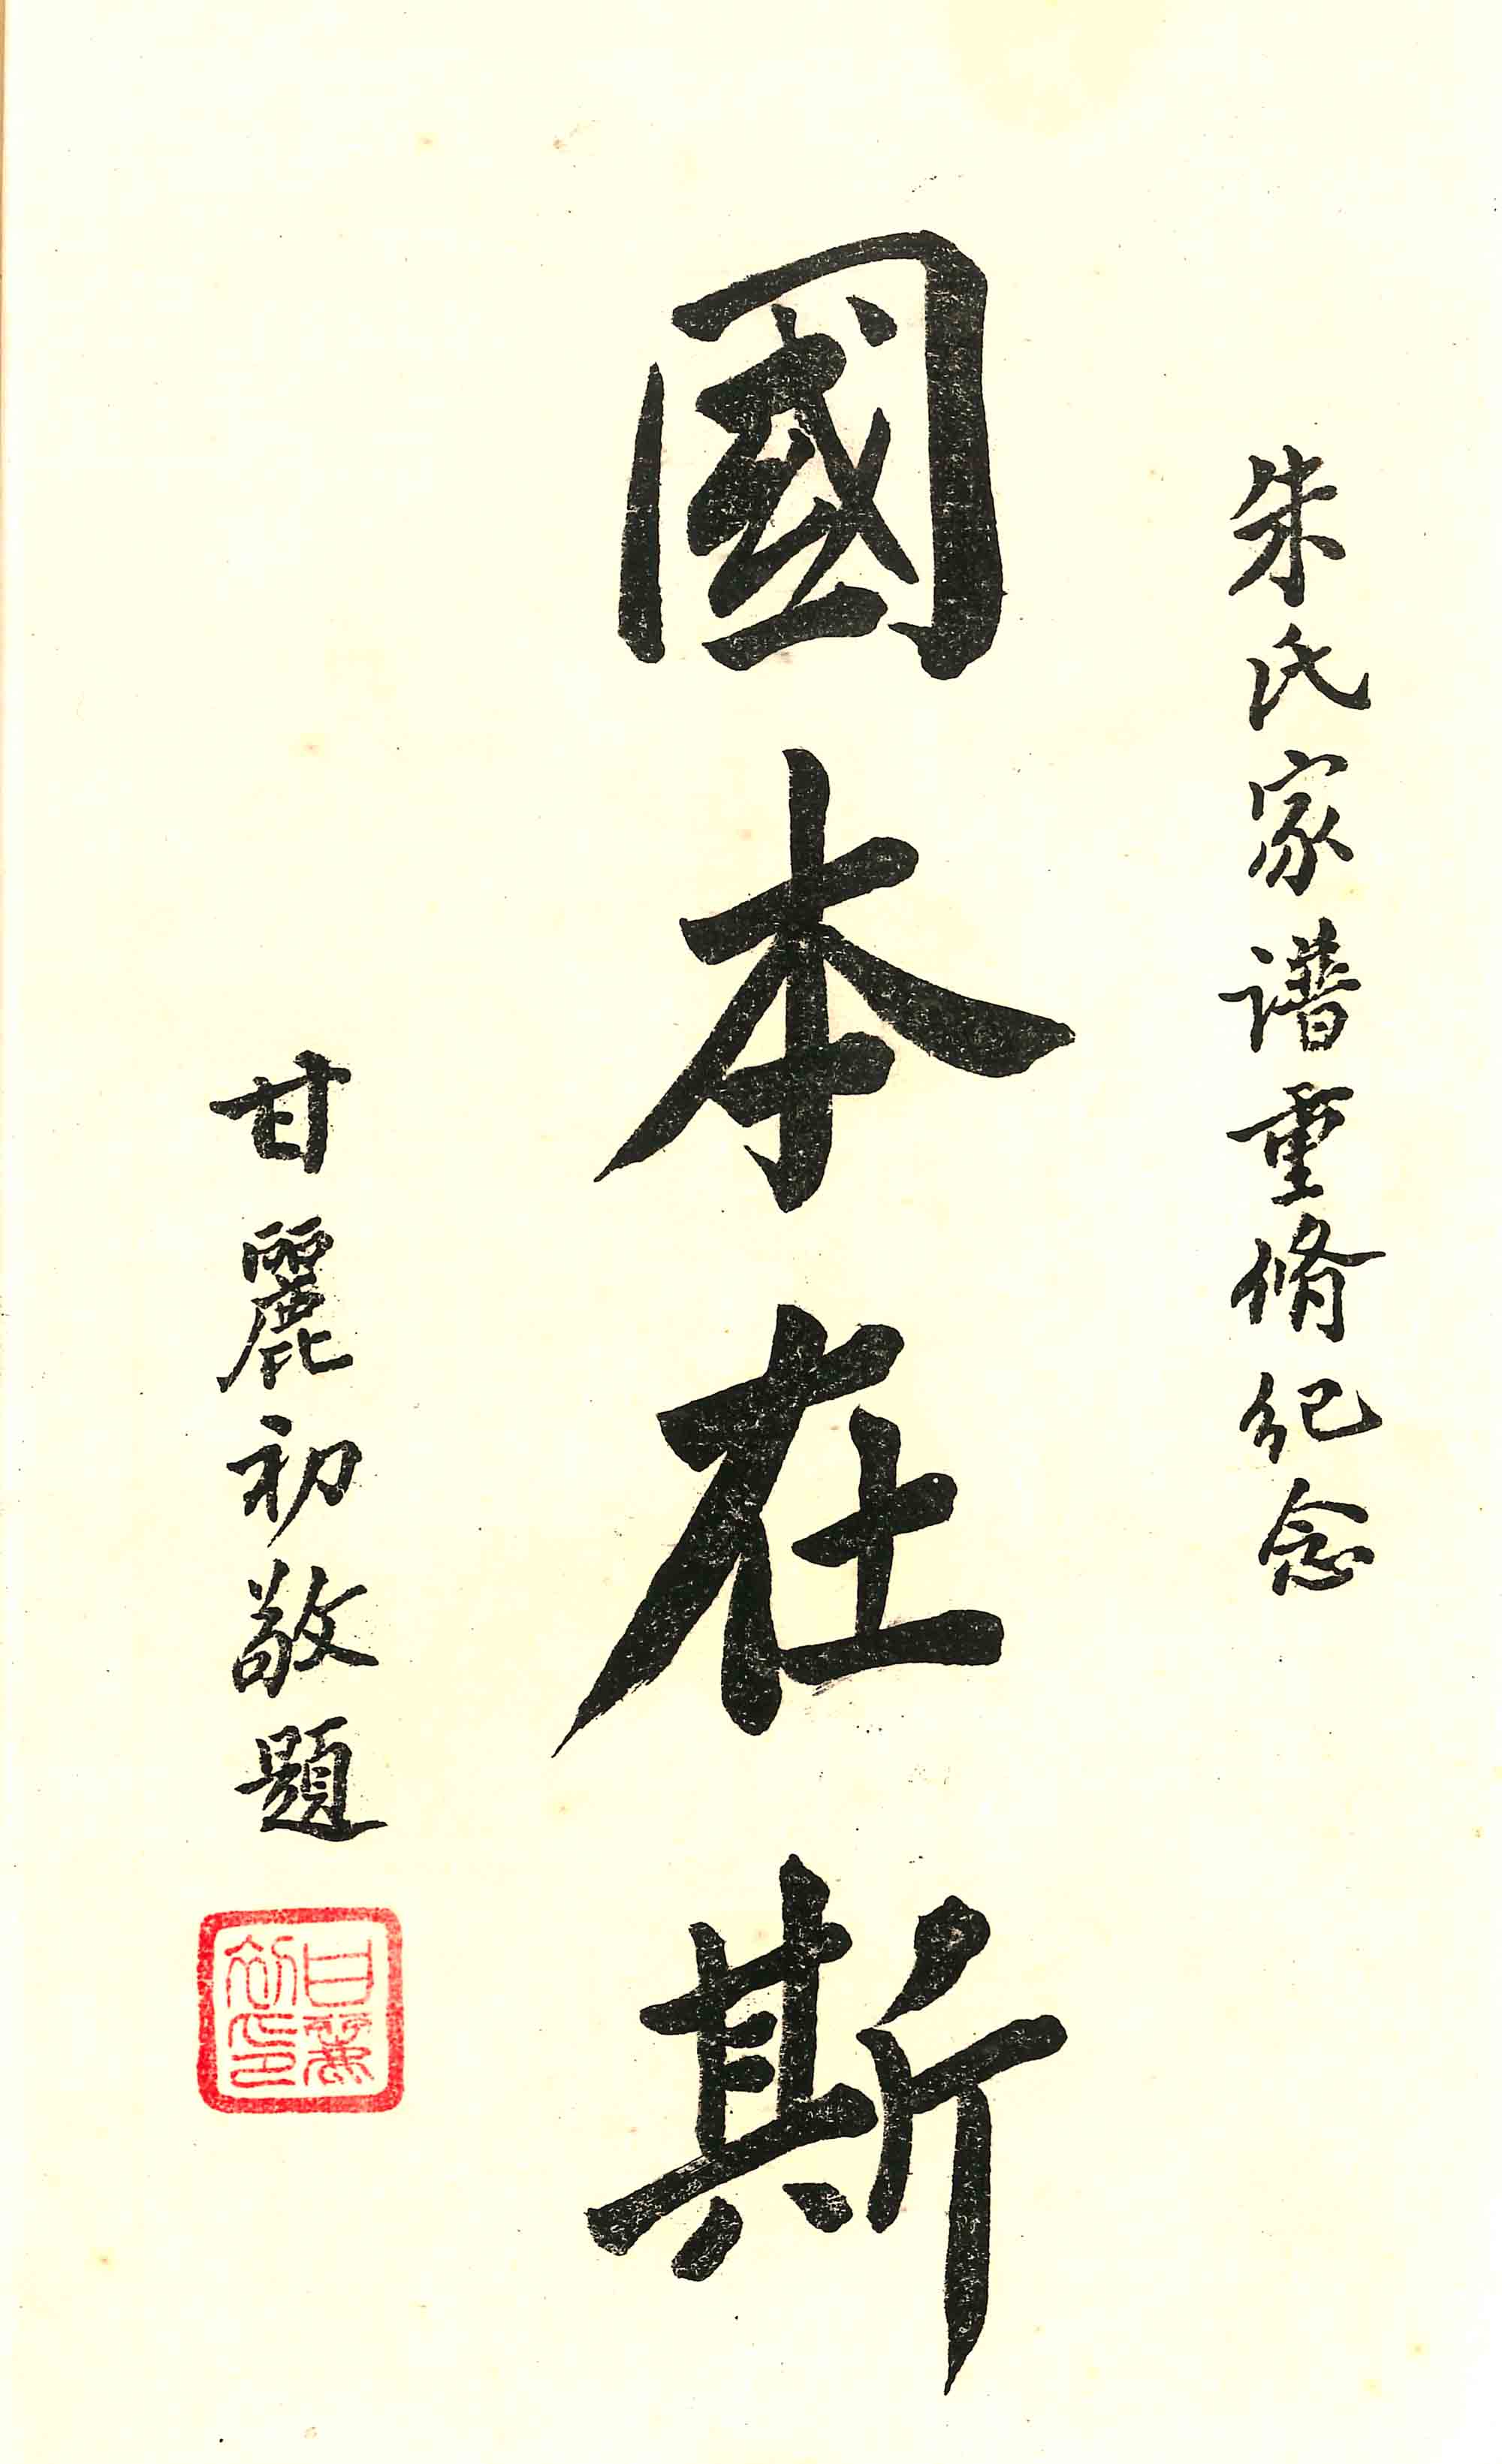 朱氏家譜重脩紀念
國本在斯
甘麗初敬題
甘麗初印